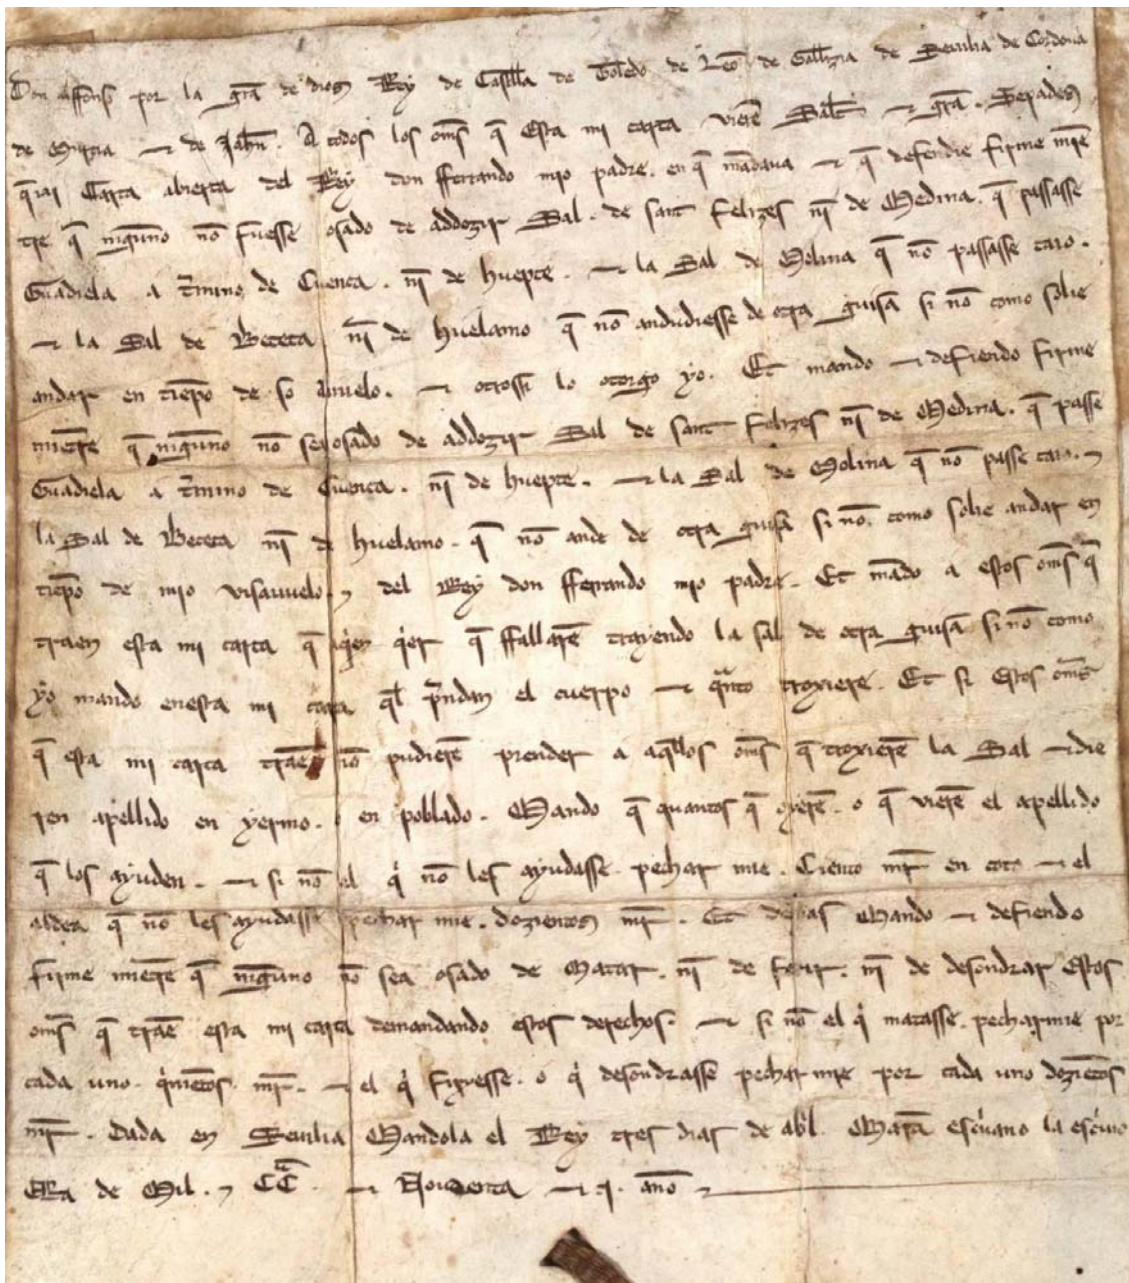 Don Alffonso por la grã de dios Rey de Castiella de Toledo de Leõ de Gallizia de Seuilla de Cordoua
de Murçia ⁊ de Jahñ. A todos los om̃s q̃ esta mi carta vierẽ Salt̃ ⁊ grã. Sepades
q̃ ui Carta abierta del Rey don fferrando mio padre. en q̃ mãdaua ⁊ q̃ defendie firme mien
tre q̃ nĩguno nõ fuesse osado de addozir Sal. de sant felizes nĩ de Medina. q̃ passasse
Guadiela a t̃mino de Cuenca. nĩ de huepte. ⁊ la Sal de Molina q̃ nõ passasse taio.
⁊ la Sal de Beteta nĩ de huelamo q̃ nõ andudiesse de otra guisa si nõ como solie
andar en tiẽpo de so auuelo. ⁊ otrossi lo otorgo yo. Et mando ⁊ defiendo firme
mietre q̃ nĩguno nõ sea osado de addozir Sal de sant felizes nĩ de Medina. q̃ passe
Guadiela a t̃mino de Cuenca. nĩ de huepte. ⁊ la Sal de Molina q̃ nõ passe taio. ⁊
la Sal de Beteta nĩ de huelamo. q̃ nõ ande de otra guisa si nõ. como solie andar en
tiẽpo de mio visauuelo. ⁊ del Rey don fferrando mio padre. Et mãdo a estos om̃s q̃
traen esta mi carta q̃ aq̇en q̇er q̃ ffallarẽ trayendo la sal de otra guisa si nõ como
yo mando enesta mi carta ql̃ p̃ndan el cuerpo ⁊ q̃nto troxiere. Et si estos om̃s
q̃ esta mi carta traẽ nõ pudierẽ prender a aq̃llos om̃s q̃ troxierẽ la Sal ⁊ die
ren apellido en yermo. o en poblado. Mando q̃ quantos q̃ oyerẽ. o q̃ vierẽ el apellido
q̃ los ayuden. ⁊ si nõ el q̇ nõ les ayudasse pechar mie. Ciento mr̃ en coto ⁊ el
aldea q̃ nõ les ayudasse pechar mie. dozientos mr̃. Et demas Mando ⁊ defiendo
firme mietre q̃ nĩguno nõ sea osado de Matar. nĩ de ferir. nĩ de desondrar estos
om̃s q̃ traẽ esta mi carta demandando estos derechos. ⁊ si nõ el q̇ matasse. pecharmie por
cada uno. q̇nietos. mr̃. ⁊ el q̇ firiesse. o q̇ desondrasse pecharmie por cada uno doziẽtos
mr̃. Dada en Seuilla Mandola el Rey tres dias de abl̃. esċuano la esċuio
Era de Mil. ⁊ CC̃. ⁊ Nouaenta ⁊ .i. anno ⁊